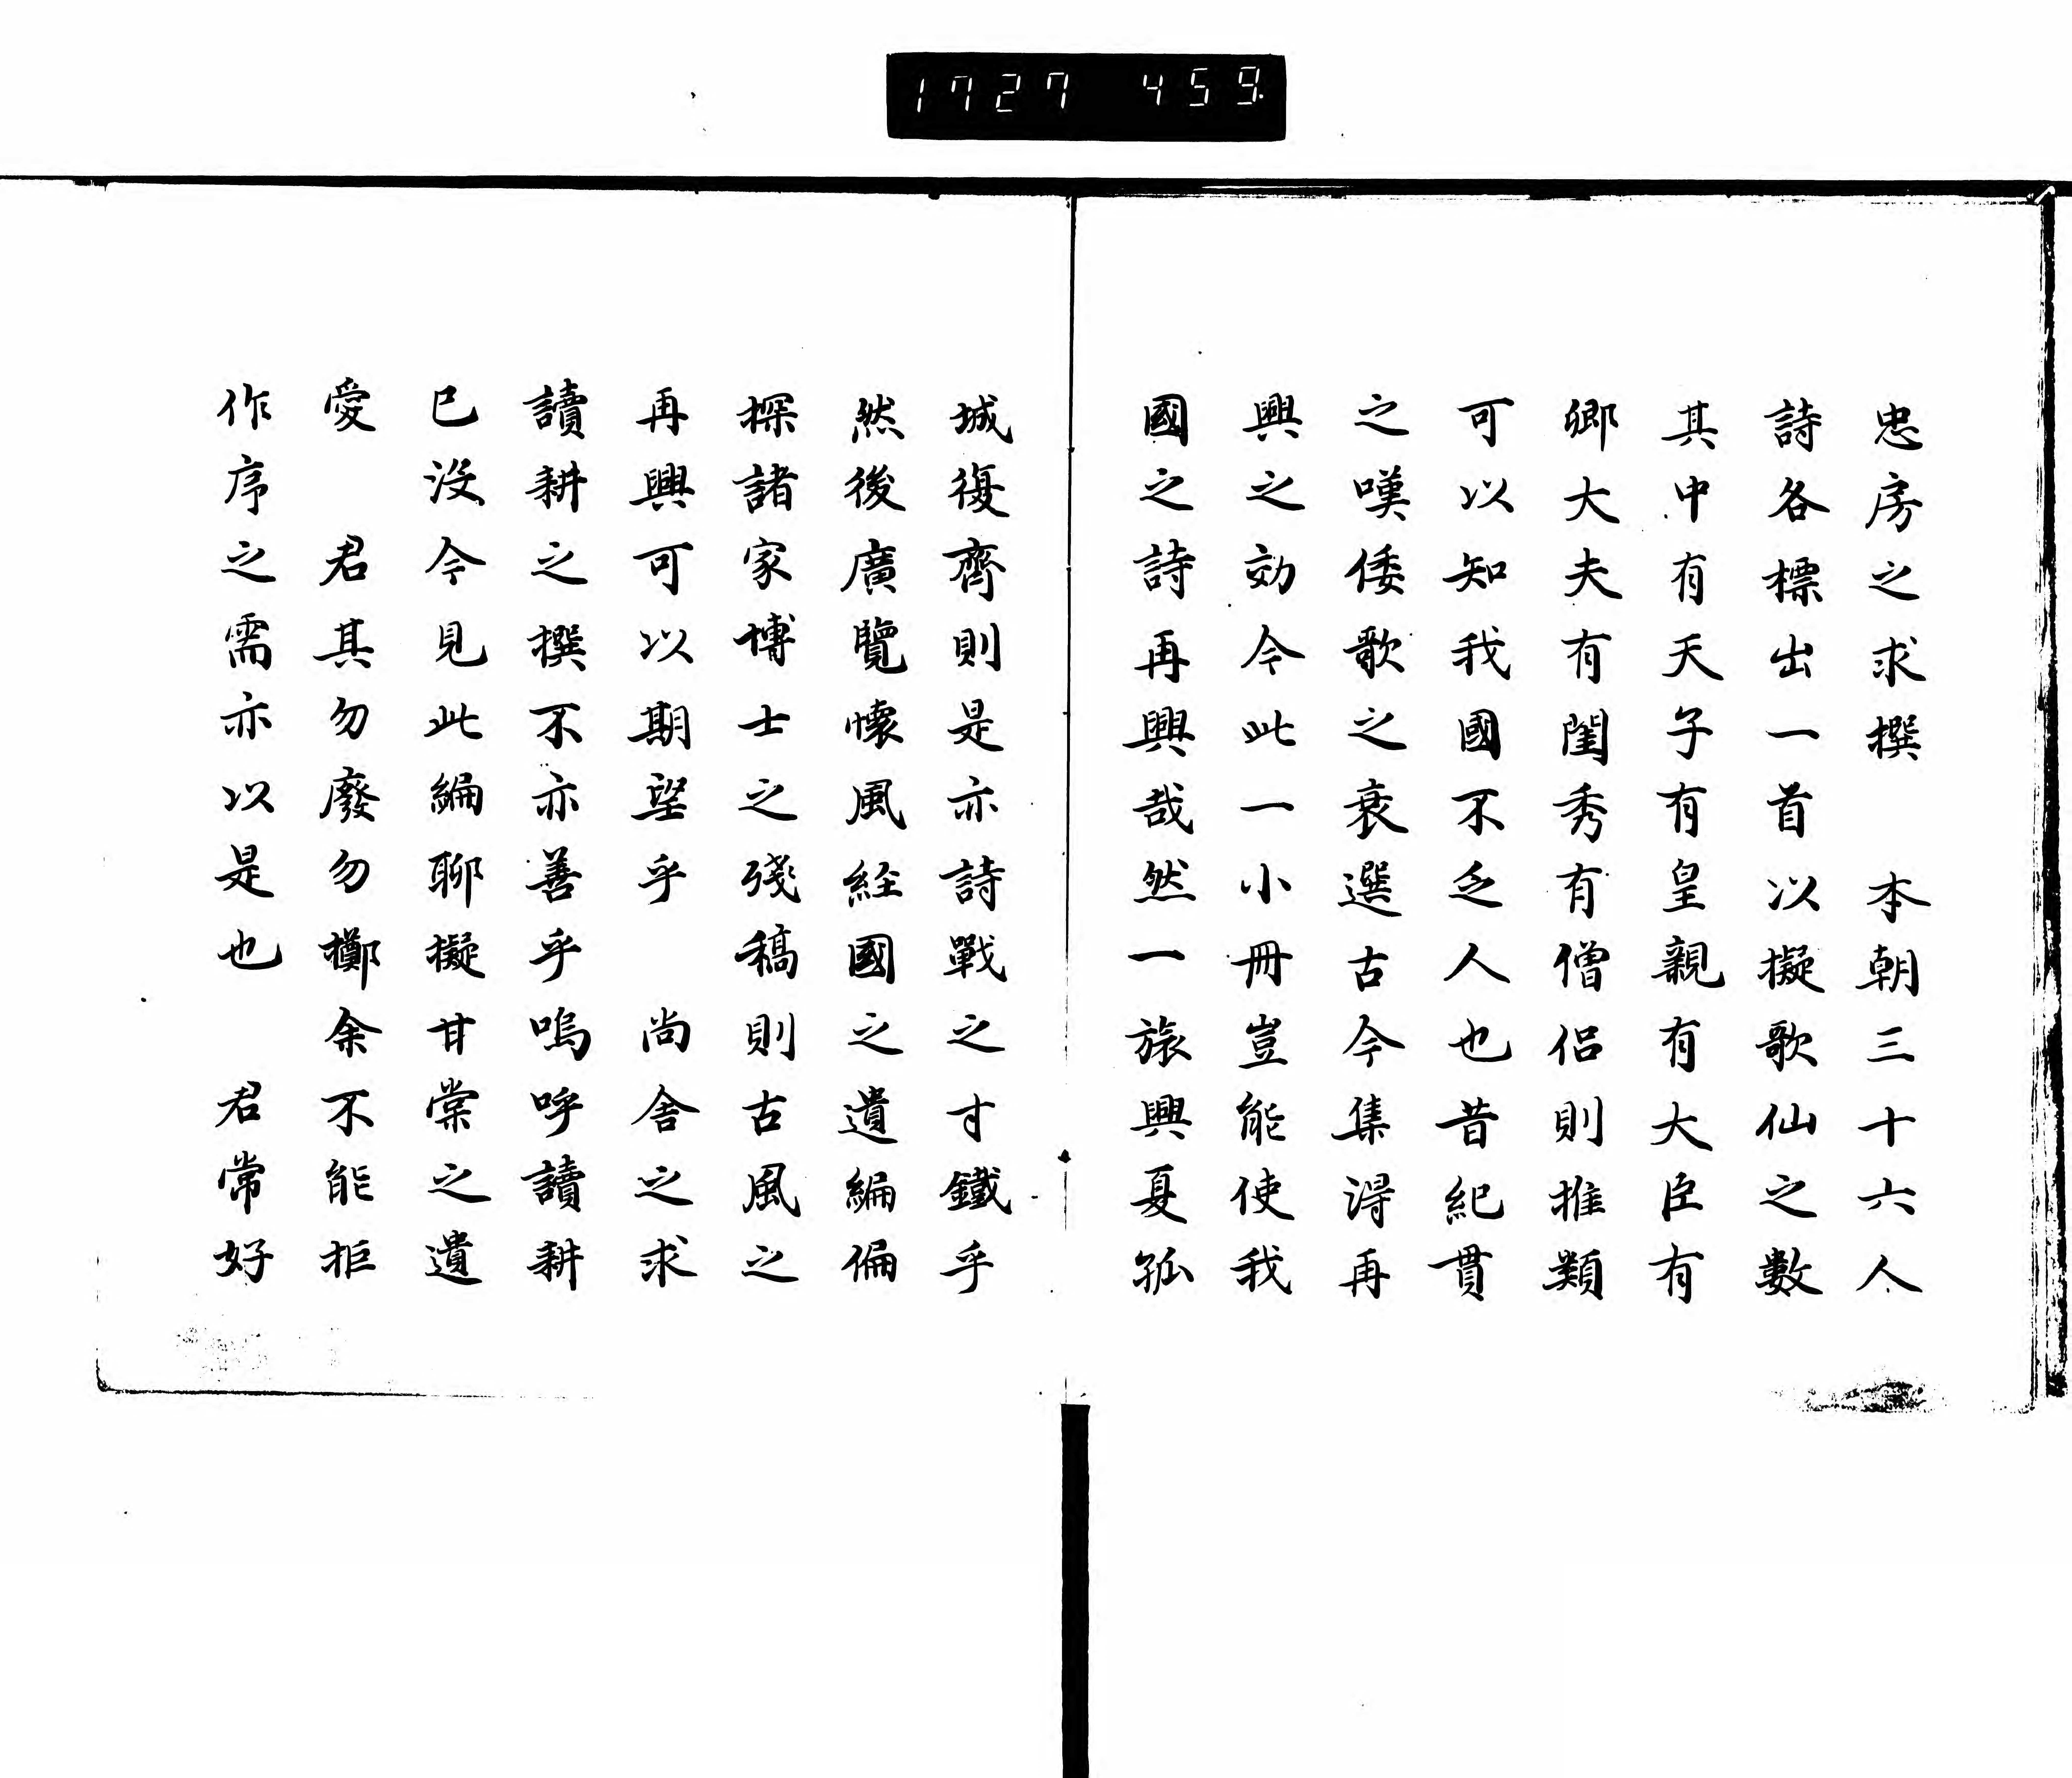 1727 459
忠房之求撰　本朝三十六人
詩各標出一首以擬歌仙之數
其中有天子有皇親有大臣有
卿大夫有閨秀有僧侶則推類
可以知我國不乏人也昔紀貫
之嘆倭歌之衰選古今集淂再
興之効今此一小冊豈能使我
國之詩再興哉然一旅興夏孤
城復齊則是亦詩戰之寸鐵乎
然後廣覽懷風経國之遺編偏
探諸家博士之殘稿則古風之
再興可以期望乎　尚舎之求
讀耕之撰不亦善乎嗚呼讀耕
已沒今見此編聊擬甘棠之遺
愛　君其勿廢勿擲余不能拒
作序之需亦以是也　君常好